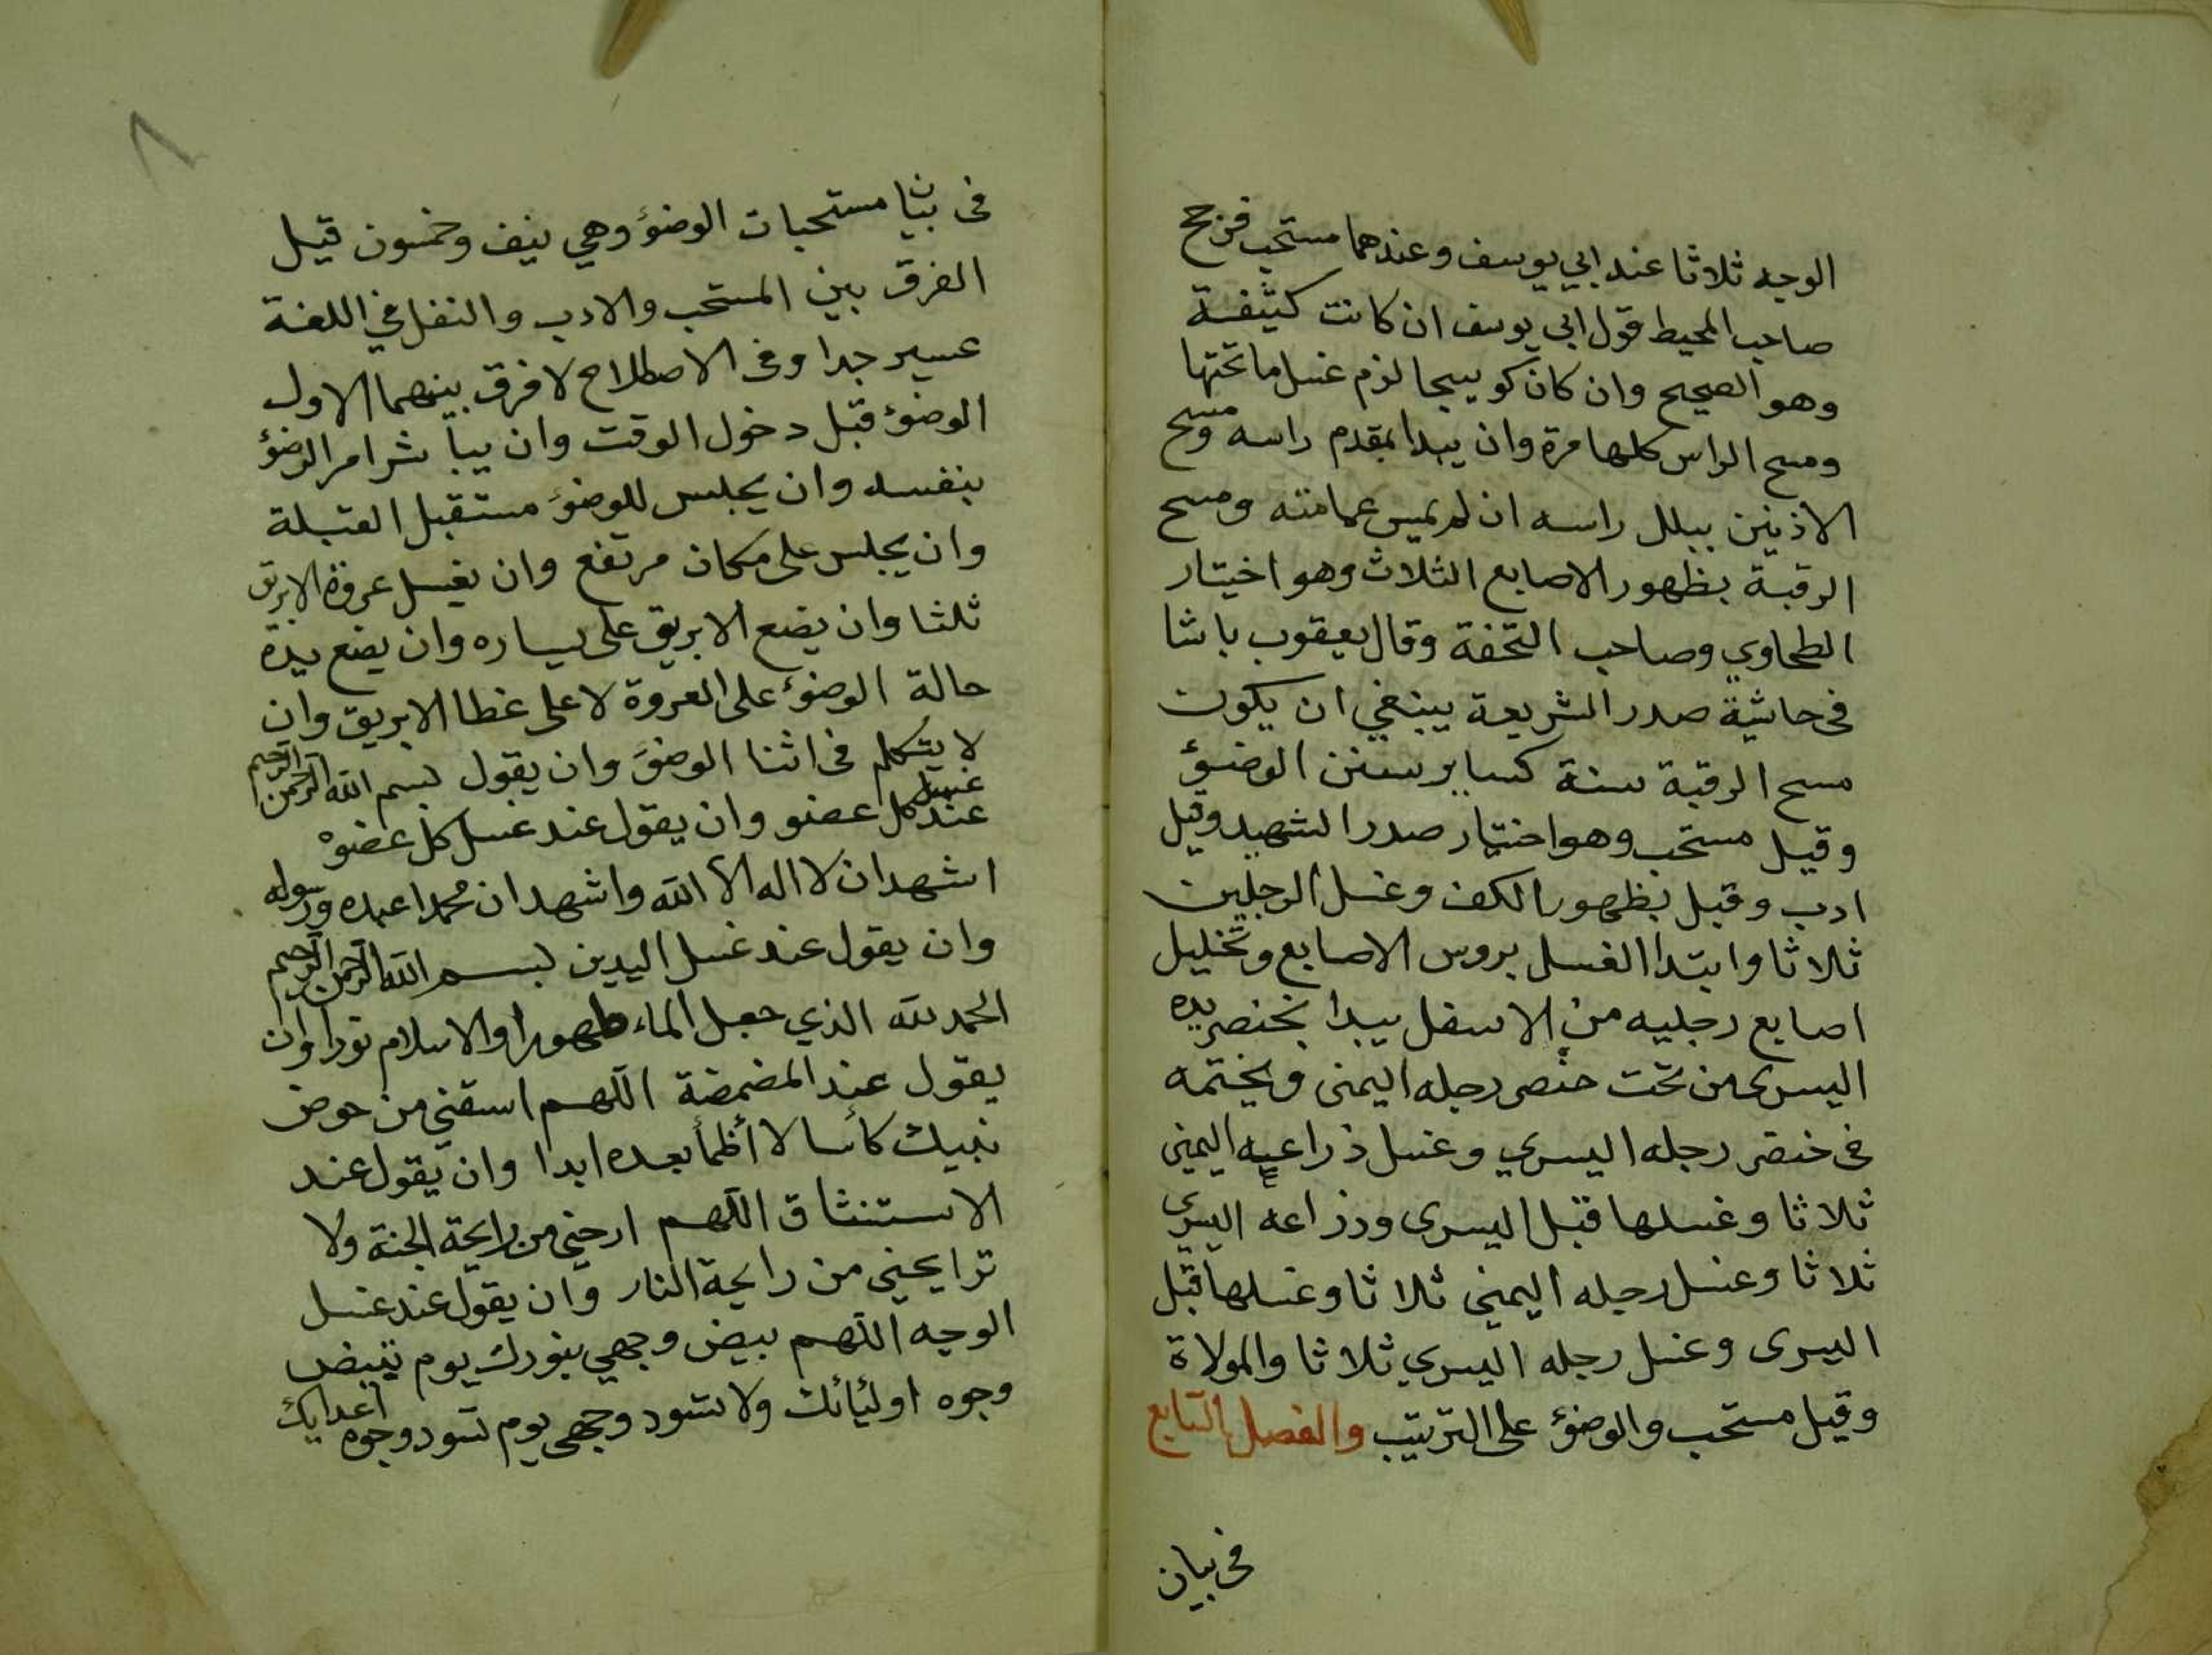 الوجه ثلاثا عند ابي يوسف وعندهما مستحب فرجح
صاحب المحيط قول ابي يوسف ان كانت كثيفة
وهو الصحيح وان كان كوسجا لزم غسل ما تحتها
ومسح الراس كلها مرة وان يبدا بمقدم راسه ومسح
الاذنين ببلل راسه ان لم يمس عمامته ومسح
الرقبة بظهور الاصابع الثلاث وهو اختيار
الطحاوي وصاحب التحفة وقال يعقوب باشا
فى حاشية صدر الشريعة ينبغي ان يكون
مسح الرقبة سنة كساير سنن الوضوء
وقيل مستحب وهو اختيار صدر الشهيد وقيل
ادب وقبل بظهور الكف وغسل الرجلين
ثلاثا وابتدا الغسل بروس الاصابع وتخليل
اصابع رجليه من الاسفل يبدا بخنصر يده
اليسرى من تحت خنصر رجله اليمنى ويختمه
فى خنصر رجله اليسري وغسل ذراعيه اليمنى
ثلاثا وغسلها قبل اليسرى وذراعه اليسرى
ثلاثا وغسل رجله اليمنى ثلاثا وغسلها قبل
اليسرى وغسل رجله اليسري ثلاثا والمولاة
وقيل مستحب والوضوء على الترتيب والفصل التابع
فى بيان
فى بيا مستحبات الوضوء وهي نيف وخمسون قيل
الفرق بين المستحب والادب والنفل في اللغة
عسير جدا وفى الاصطلاح لا فرق بينهما الاول
الوضوء قبل دخول الوقت وان يباشر امر الوضوء
بنفسه وان يجلس للوضوء مستقبل القبلة
وان يجلس على مكان مرتفع وان يغسل عروة الابريق
ثلثا وان يضع الابريق على يساره وان يضع يده
حالة الوضوء على العروة لا على غطا الابريق وان
لا يتكلم فى اثنا الوضوء وان يقول بسم الله الرحمن الرحيم
عند غسل كل عضو وان يقول عند غسل كل عضوه
اشهد ان لا اله الا الله واشهد ان محمدا عبده ورسوله
وان يقول عند غسل اليدين بسم الله الرحمن الرحيم
الحمد لله الذي جعل الماء طهورا والاسلام نورا وان
يقول عند المضمضة اللهم اسقني من حوض
نبيك كأسا لا أظمأ بعده ابدا وان يقول عند
الاستنشاق اللهم ارحني من رايحة الجنة ولا
ترايحني من رايحة النار وان يقول عند غسل
الوجه اللهم بيض وجهي بنورك يوم تبيض
وجوه اوليائك ولا تسود وجهى يوم تسود وجوه اعدايك